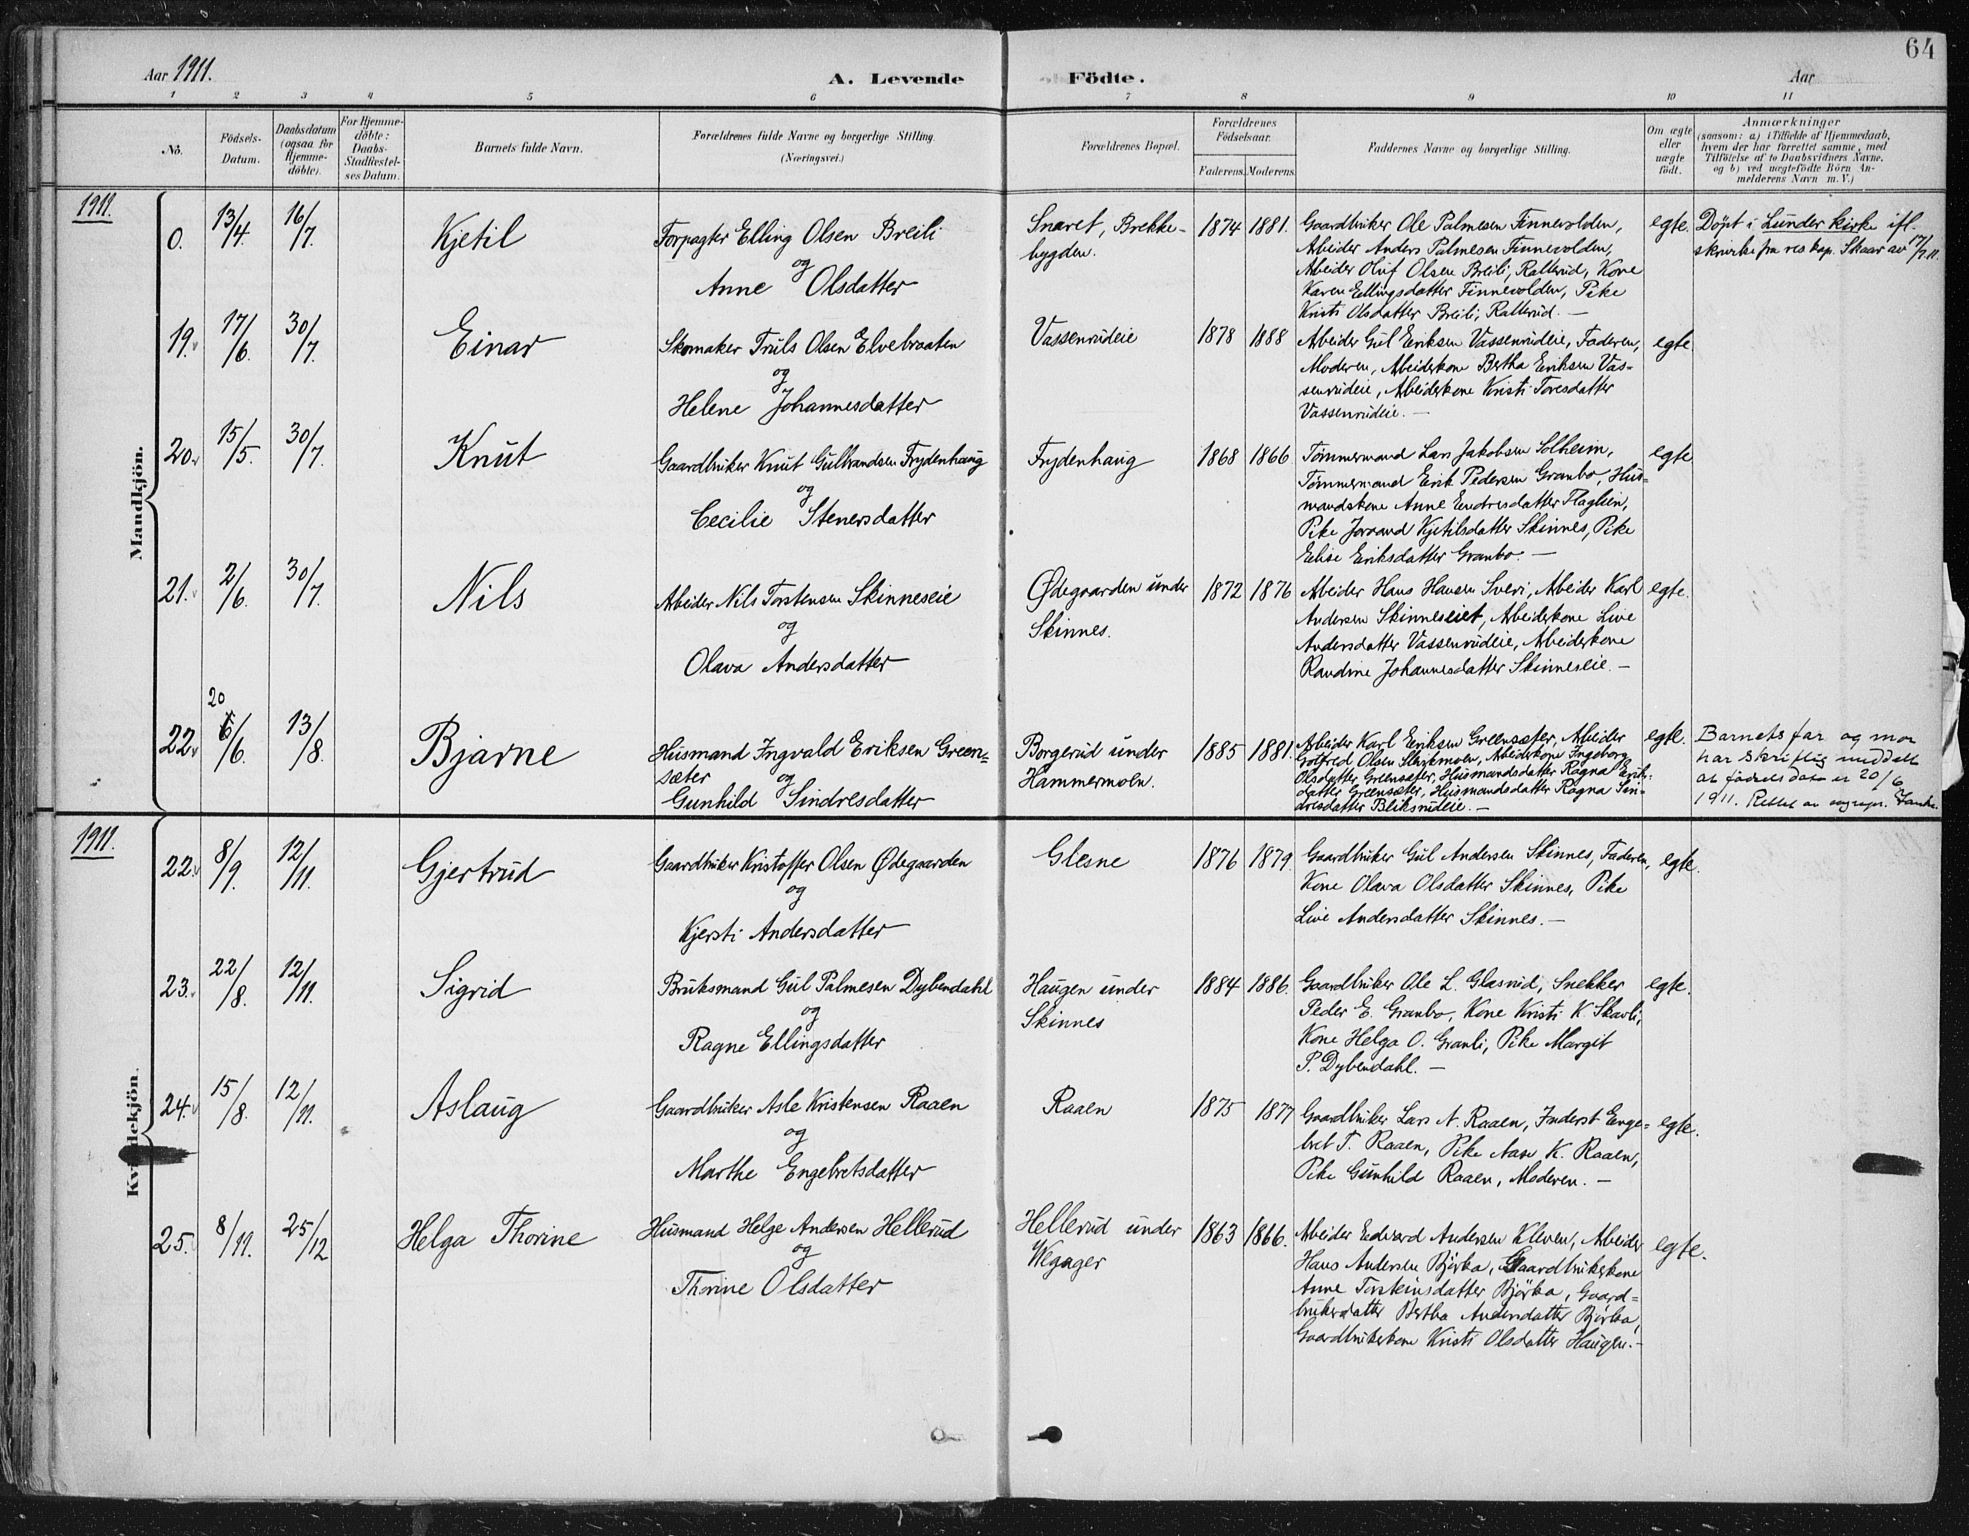 64
Aar 1911.
A. Levende Födte.
Aar
1 2 3 4 5 6 7 8 9 10 11
No.
Födsels-Datum.
Daabsdatum (ogsaa for Hjemme-döbte).
For Hjemme-döbte: Daabs-Stadfæstel-ses Datum.
Barnets fulde Navn.
Forældrenes fulde Navne og borgerlige Stilling.
(Næringsvei.)
Forældrenes Bopæl.
Forældrenes Födselsaar.
Faderens. Moderens.
Faddernes Navne og borgerlige Stilling.
Om ægte eller uægte födt.
Anmærkninger
(saasom: a) i Tilfælde af Hjemmedaab,
hvem der har forrettet samme, med
Tilföielse af to Daabsvidners Navne.
og b) ved uægtefödte Börn An-
melderens Navn m. V.)
1911.
Mandkjön.
0. 13/4. 16/7. Kjetil
Forpagter Elling Olsen Breili
og
Anne Olsdatter
Snaret, Brekke-
bygden.
1874 1881.
Gaardbruker Ole Palmesen Finnevolden,
Arbeider Anders Palmesen Finnevolden,
Arbeider Oluf Olsen Breili, Ratterud, Kone
Karen Ellingsdatter Finnevolden, Pike
Kristi Olsdatter Breili, Ratterud. —
egte.
Döpt i Lunder kirke ifl.
skrivelse fra res. kap. Skaar av 17/7 11.
19. 17/6. 30/7. Einar
Skomaker Truls Olsen Elvebraaten
og
Helene Johannesdatter
Vassenrudeie
1878 1888
Arbeider Gul Eriksen Vassenrudeie, Faderen,
Moderen, Arbeiderkone Bertha Eriksen Vas-
senrudeie, Arbeiderkone Kristi Toresdatter
Vassenrudeie. —
egte
20. 15/5. 30/7. Knut
Gaardbruker Knut Gulbrandsen Frydenhaug
og
Cecilie Stenersdatter
Frydenhaug
1868 1866
Tømmermand Lars Jakobsen Solheim,
Tømmermand Erik Pedersen Granbo, Hus-
mandskone Anne Endresdatter Flaglien,
Pike Joraand Kjetilsdatter Skinnes, Pike
Elise Eriksdatter Granbo. —
egte
21. 2/6. 30/7. Nils
Arbeider Nils Torstensen Skinneseie
og
Olava Andersdatter
Ødegaarden under
Skinnes.
1872 1876
Arbeider Hans Hansen Sveri, Arbeider Karl
Andersen Skinneseiet, Arbeiderkone Live
Andersdatter Vassenrudeie, Arbeiderkone
Randine Johannesdatter Skinneseie. —
egte.
20
22. 6/6. 13/8. Bjarne
Husmand Ingvald Eriksen Green-
sæter
og
Gunhild Sindresdatter
Borgerud under
Hammermoen.
1885 1881.
Arbeider Karl Eriksen Greensæter, Arbeider
Golfred Olsen, Arbeiderkone Ingeborg
Olsdatter Greensæter, Husmandsdatter Ragna Erik-
datter Greensæter, Husmandsdatter Ragna Sin-
dresdatter Bliksrudeie. —
egte.
Barnets far og mor
har skriftlig meddelt
at fødselsdato er 20/6
1911. Rettet av sognepr.
1911.
Kvindekjön.
22. 8/9. 12/11. Gjertrud
Gaardbruker Kristoffer Olsen Ødegaarden
og
Kjersti Andersdatter
Glesne
1876 1879.
Gaardbruker Gul Andersen Skinnes, Faderen,
Kone Olava Olsdatter Skinnes, Pike
Live Andersdatter Skinnes. —
egte.
23. 22/8. 12/11. Sigrid
Bruksmand Gul Palmesen Dybendahl
og
Ragne Ellingsdatter
Haugen under
Skinnes
1884 1886.
Gaardbruker Ole L. Glasrud, Snekker
Peder E. Granbo, Kone Kristi K. Skarli,
Kone Helga O. Granli, Pike Margit
P. Dybendahl. —
egte.
24. 15/8. 12/11. Aslaug
Gaardbruker Asle Kristensen Raaen
og
Marthe Engebretsdatter
Raaen
1875 1877
Gaardbruker Lars N. Raaen, Inderst Enge-
bret T. Raaen, Pike Aase K. Raaen,
Pike Gunhild Raaen, Moderen. —
egte.
25. 8/11. 25/12 Helga Thorine
Husmand Helge Andersen Hellerud
og
Thorine Olsdatter
Hellerud under
Wegager
1863 1866.
Arbeider Edvard Andersen Kleven, Arbeider
Hans Andersen Bjørka, Gaardbrukerkone
Anne Torsteinsdatter Bjørka, Gaard-
brukerdatter Bertha Andersdatter Bjørka,
Gaardbrukerkone Kristi Olsdatter Haugen. —
egte.